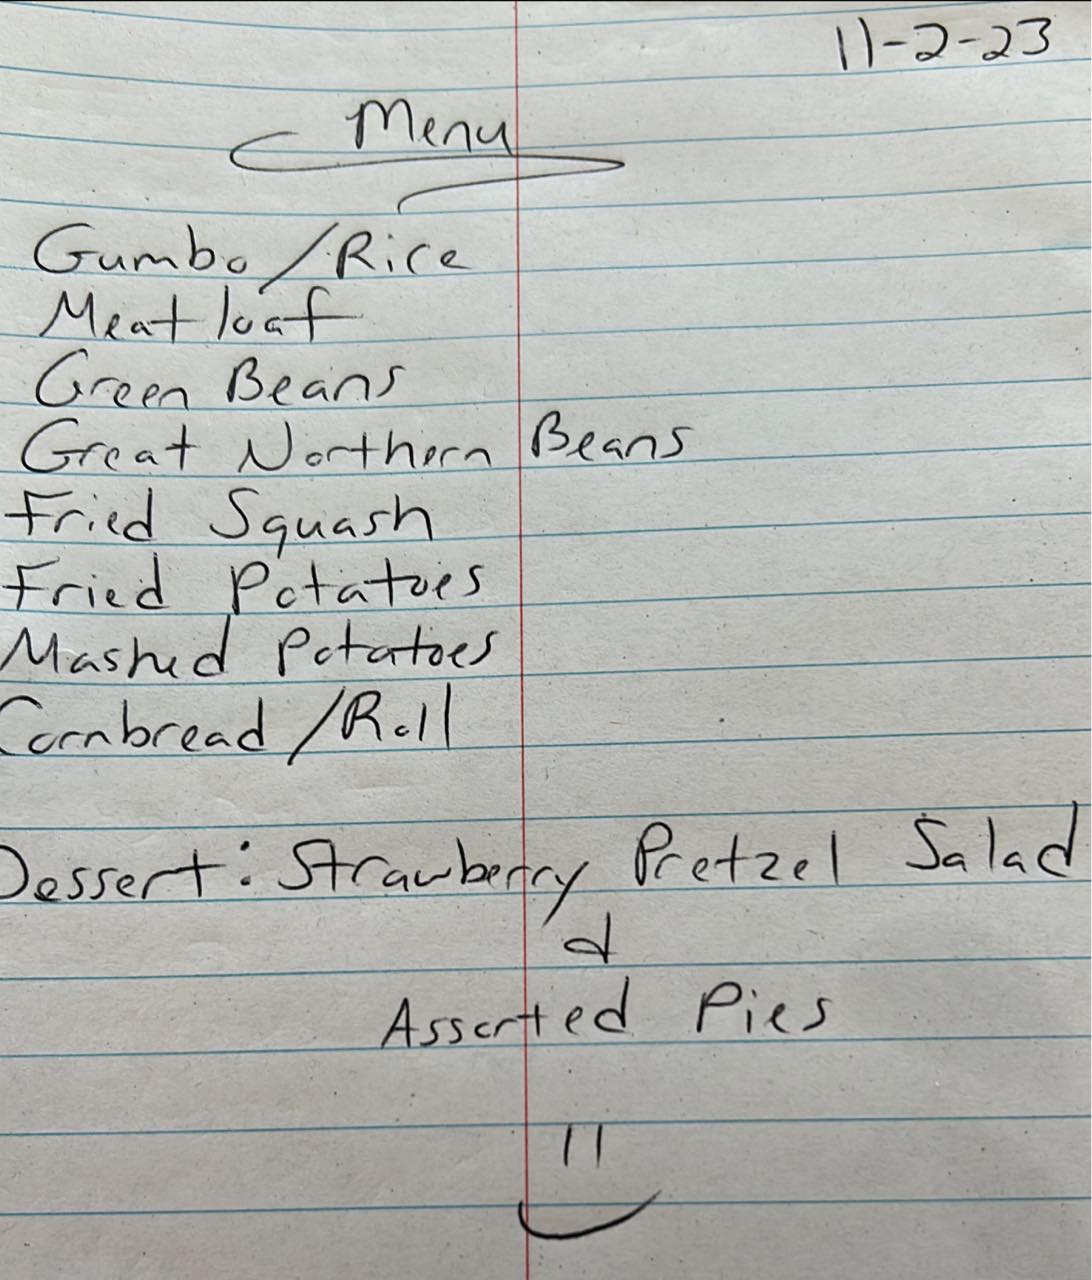 11-2-23
Menu
Gumbo/Rice
Meatloaf
Green Beans
Great Northern Beans
Fried Squash
Fried Potatoes
Mashed Potatoes
Cornbread/Roll
Dessert: Strawberry Pretzel Salad
&
Assorted Pies